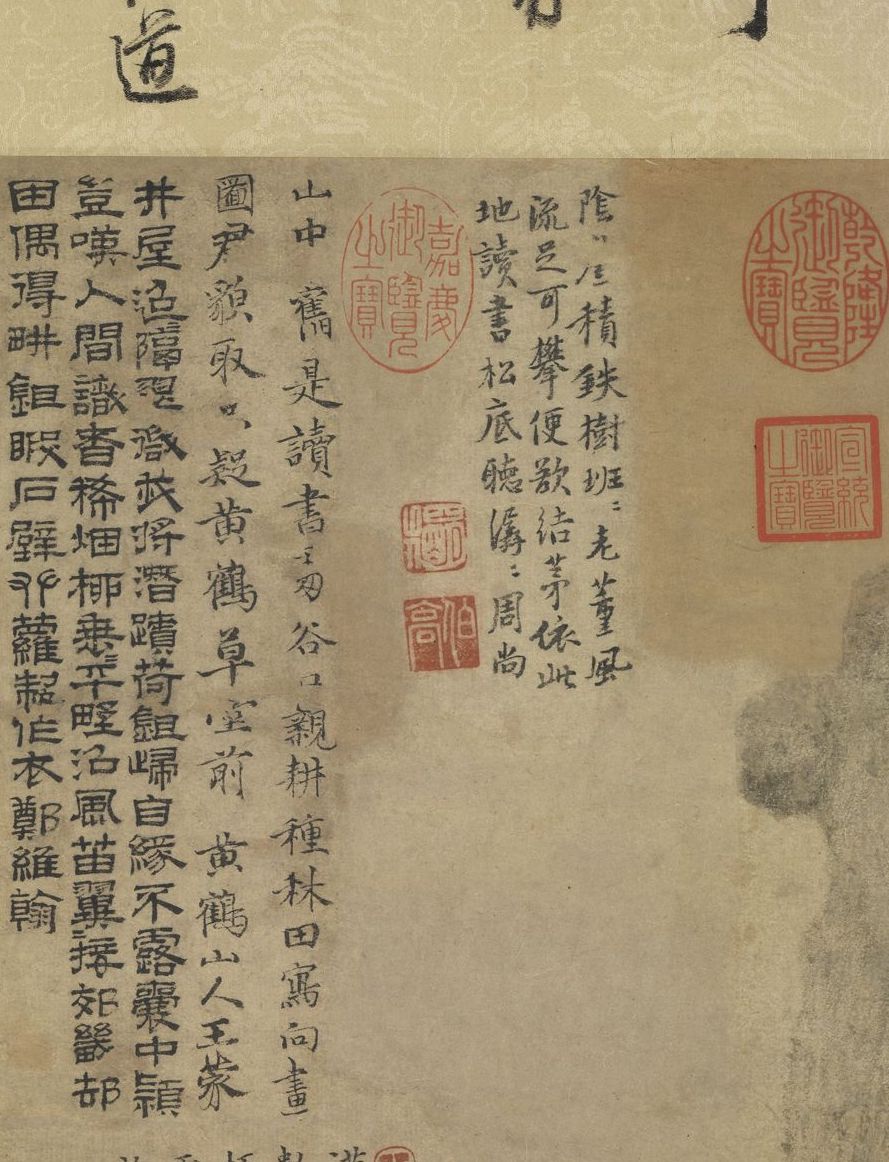 道
乾隆御覽之寶
宣統御覽之寶
陰〻積鉄樹班〻老薑風
流足可攀便欲結茅依此
地讀書松底聽潺〻周尚
嘉慶御覽之寶
山中舊是讀書谷口親耕種秫田寫向畫
圖君貌取只疑黃鶴草堂前 黃鶴山人王蒙
井屋迢隔翠微我將潛蹟荷鉏歸自緣不露囊中穎
豈嘆人間識者稀烟柳垂平野沿風苗翼接郊畿却
田偶得耕鉏暇石壁蘿製作衣鄭維翰